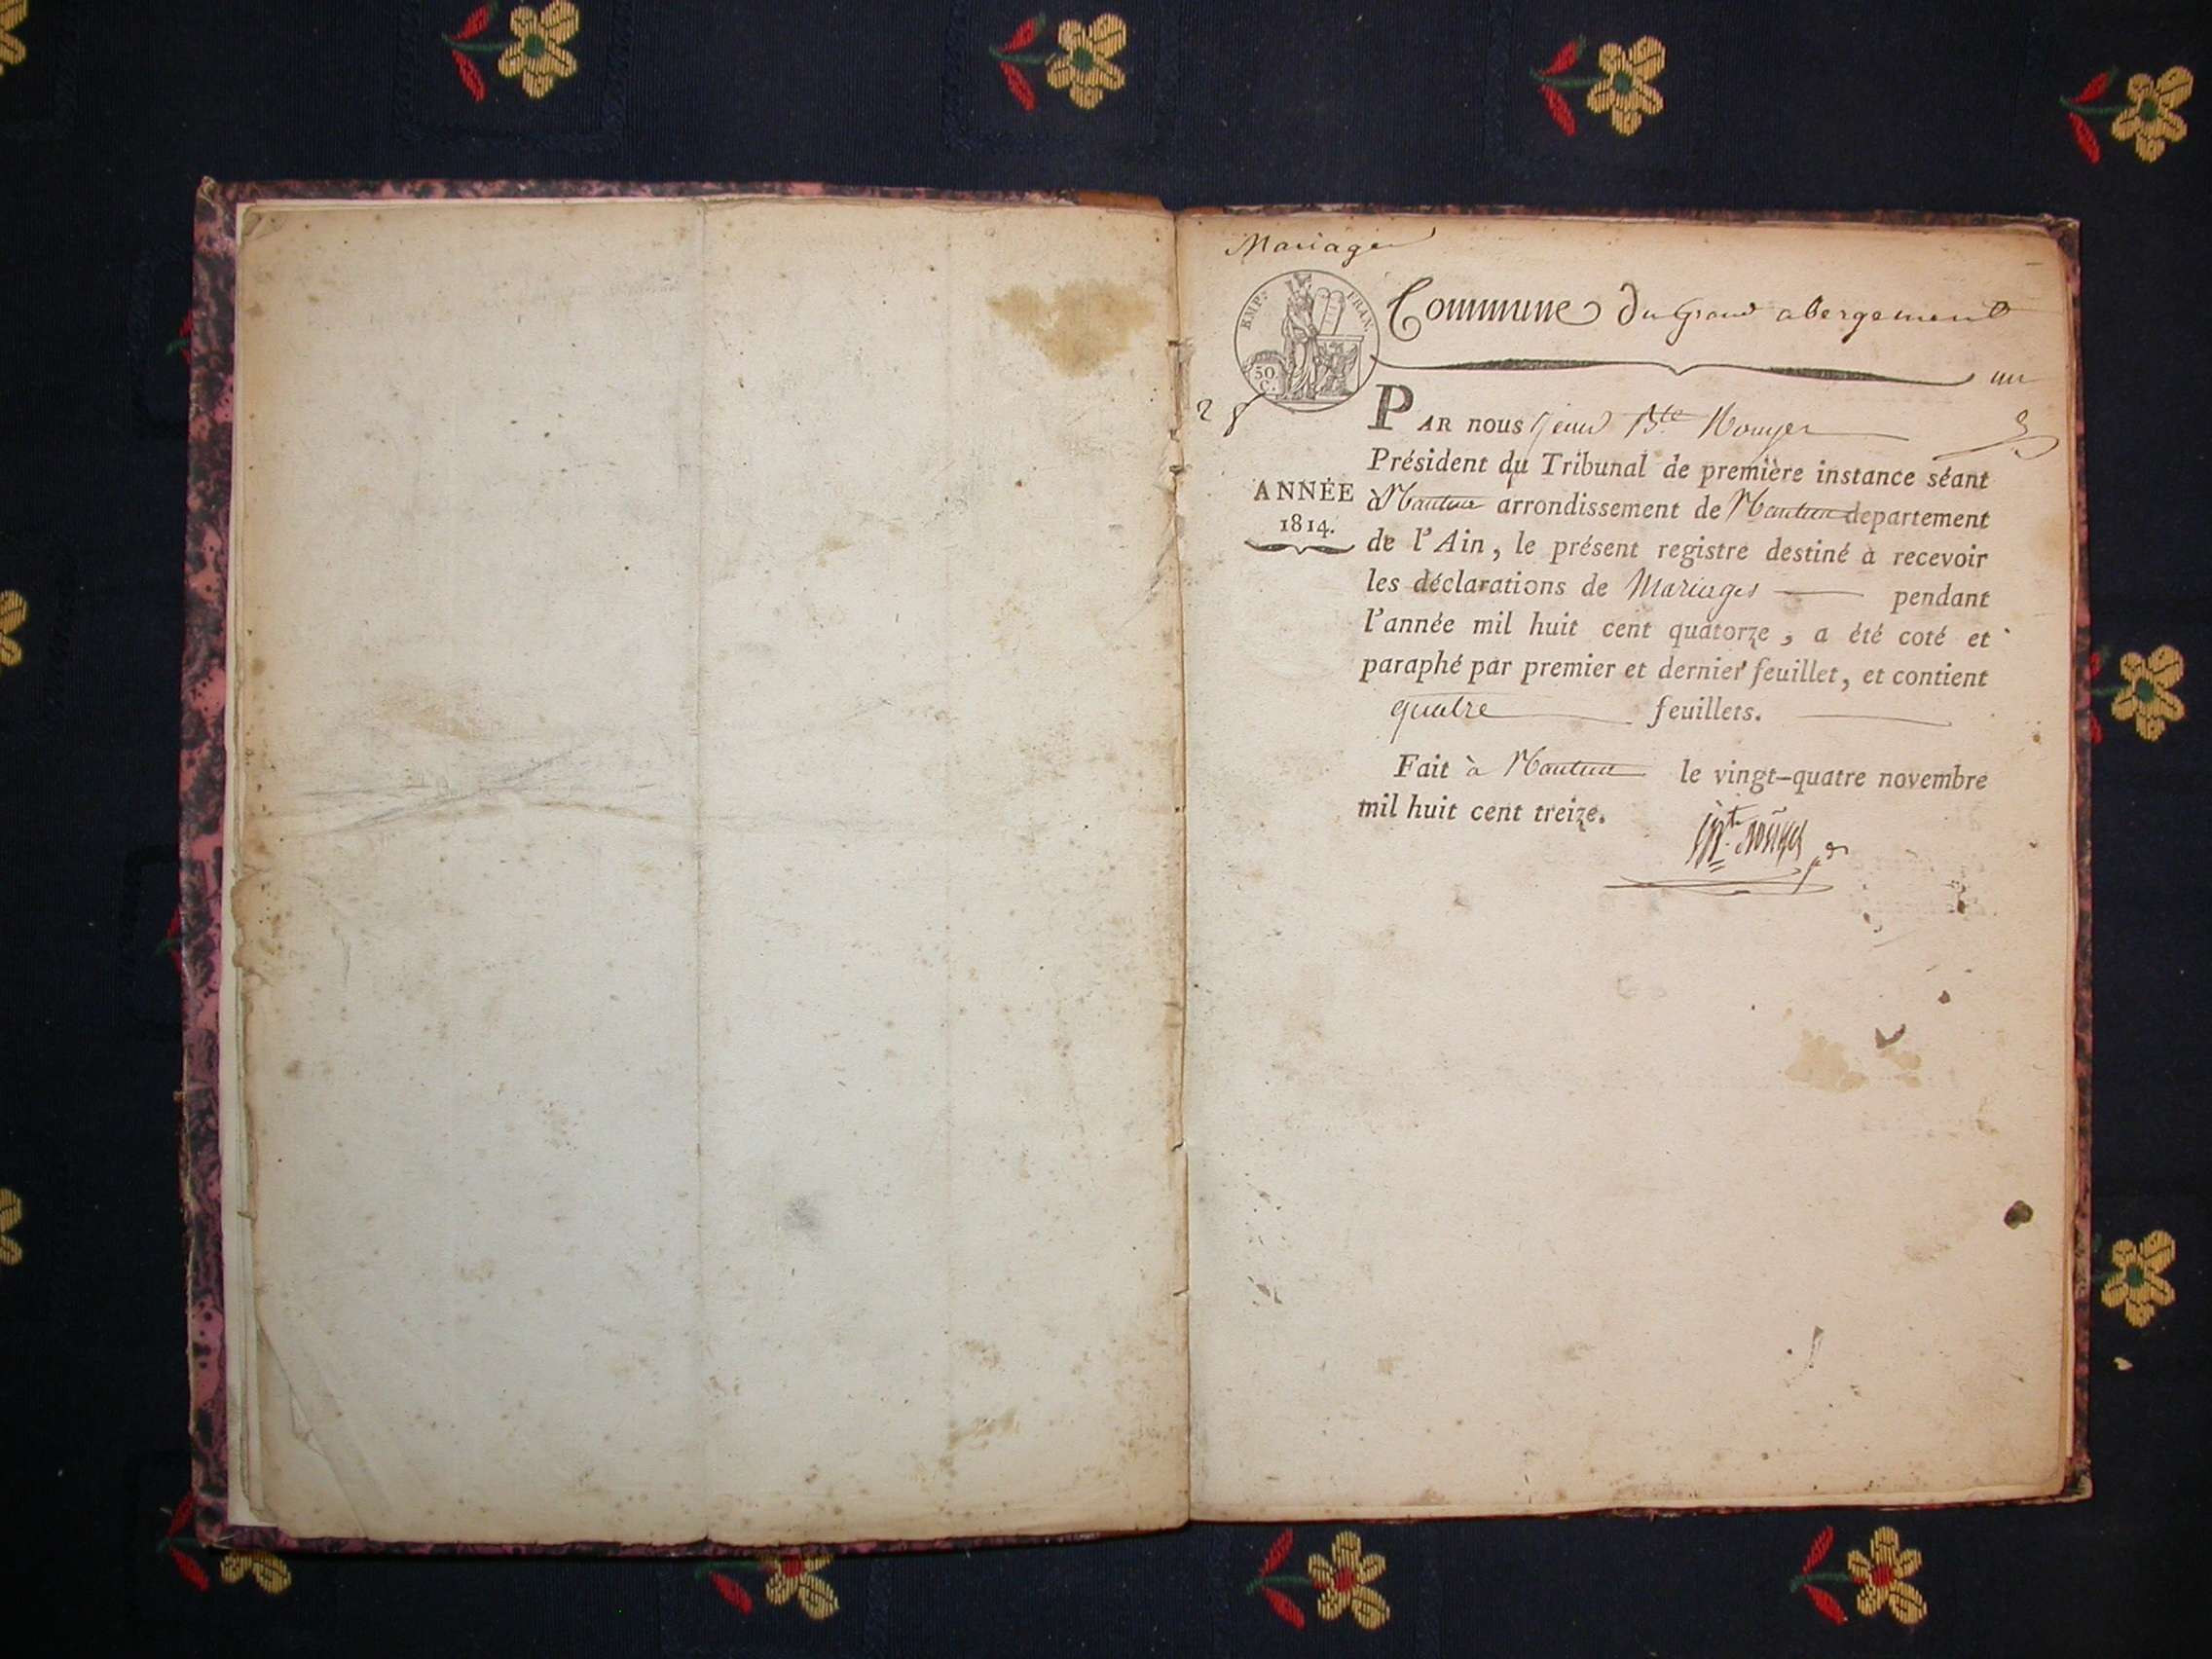 Mariage
EMP. FRAN.
50
C.
Commune Du Grand abergement
un
PAR NOUS jean Bte
Président du Tribunal de première instance séant
ANNÉE
1814.
à Nantua arrondissement de Nantua departement
de l'Ain, le présent registre destiné à recevoir
les déclarations de Mariages pendant
l'année mil huit cent quatorze, a été coté et
paraphé par premier et dernier feuillet, et contient
quatre feuillets.
Fait à Nantua le vingt-quatre novembre
mil huit cent treize.